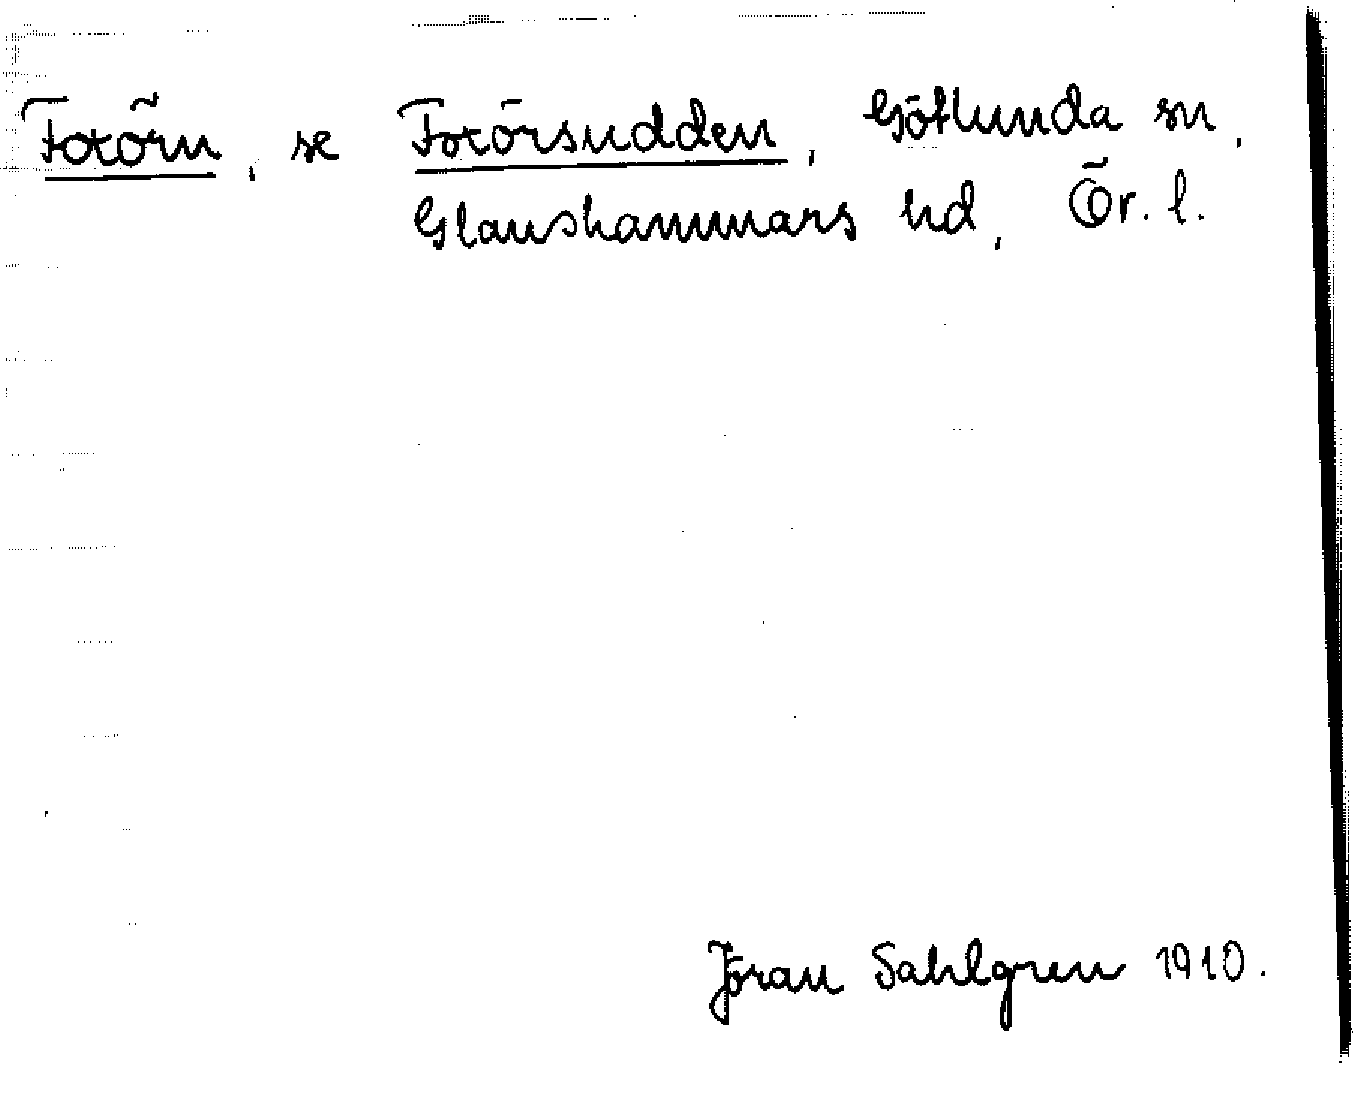 Foxörn, se Foxörsudden, Götlunda sn,
Glanshammars hd, Ör. l.
Jöran Sahlgren 1910.